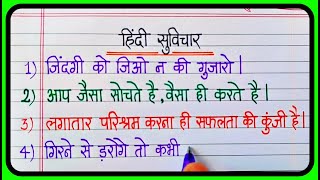 हिंदी सुविचार
1) जिंदगी को जिओ न की गुजारो |
2) आप जैसा सोचते है, वैसा ही करते है |
3) लगातार परिश्रम करना ही सफलता की कुंजी है |
4) गिरने से ड़रोगे तो कभी